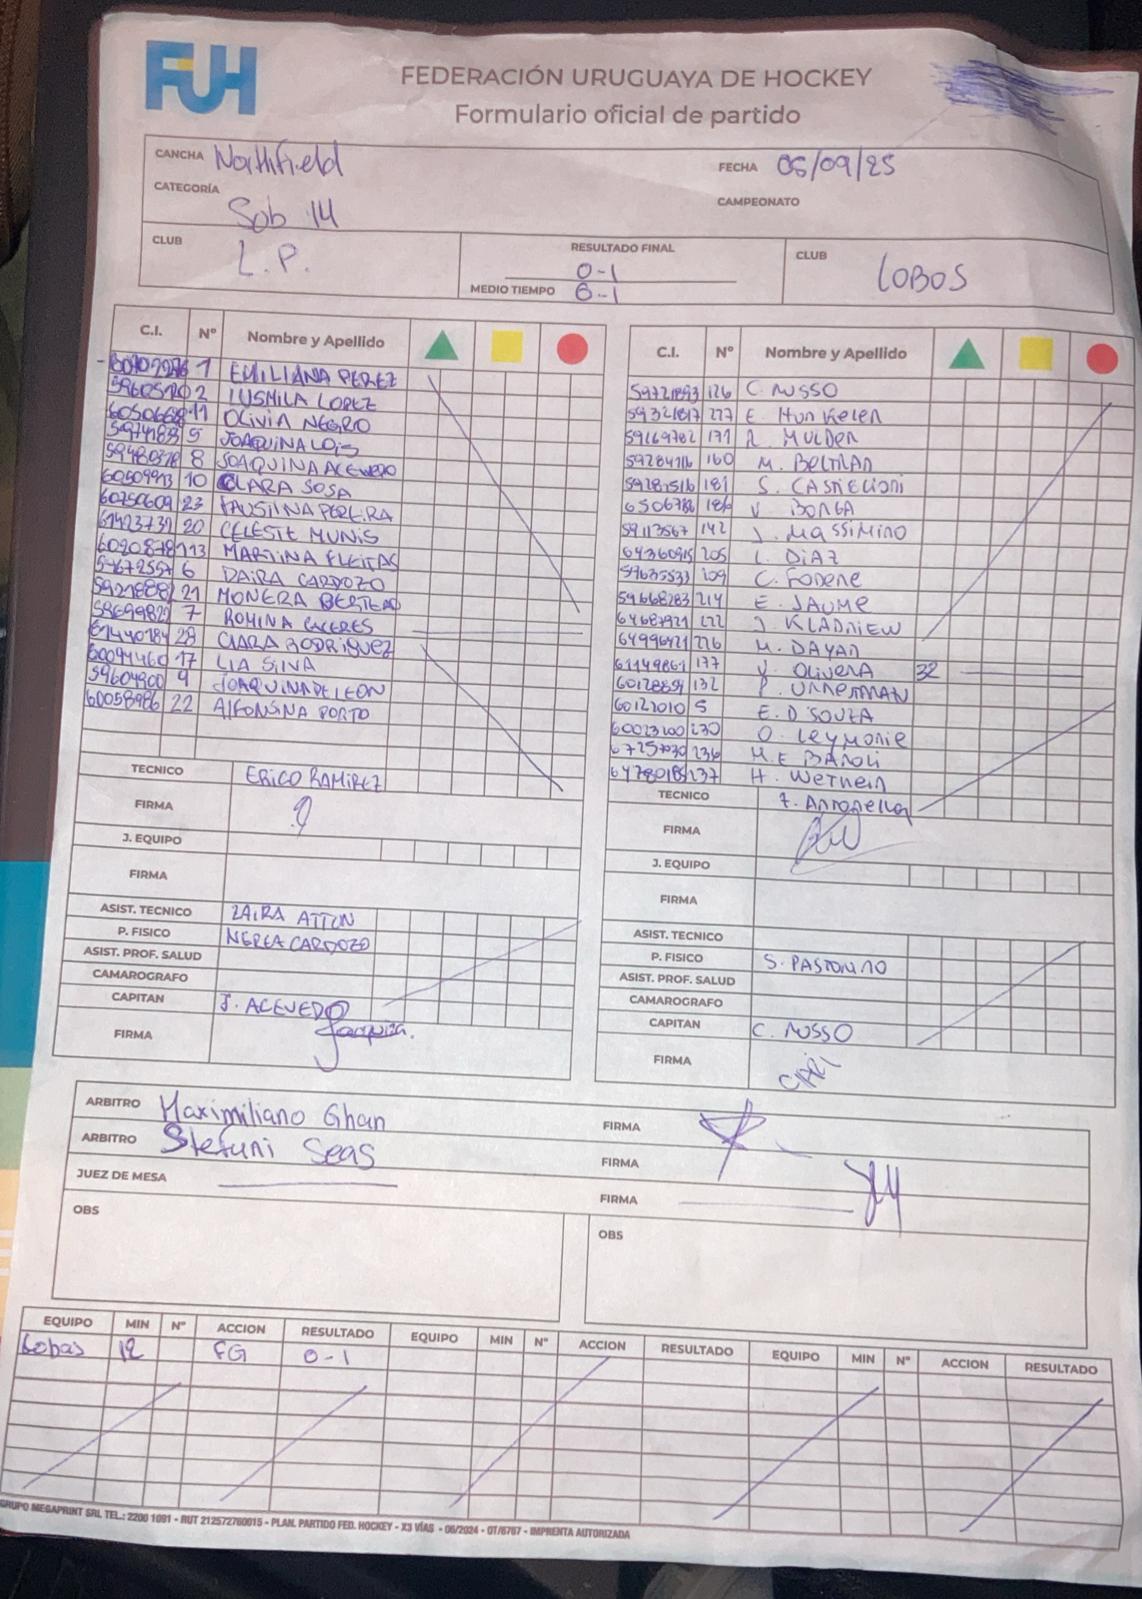 FUH
FEDERACIÓN URUGUAYA DE HOCKEY
Formulario oficial de partido
CANCHA Northfield
FECHA 05/09/25
CATEGORÍA Sob 14
CAMPEONATO
CLUB L.P.
RESULTADO FINAL 0-1
MEDIO TIEMPO 0-1
CLUB LOBOS
C.I. Nº Nombre y Apellido
1 EMILIANA PEREZ
2 LUSMILA LOPEZ
11 OLIVIA NEGRO
5 JOAQUINA LOIS
8 JOAQUINA ACEVEDO
60509913 10 CLARA SOSA
60750609 23 FAUSTINA PEREIRA
61423731 20 CELESTE MUNIS
13 MARTINA FLEITAS
6 DAIRA CARDOZO
21 MONERA
7 ROMINA CACERES
28 CLARA RODRIGUEZ
60094460 17 LIA SILVA
59604900 9 JOAQUINA DE LEON
60058986 22 ALFONSINA PORTO
TECNICO ERICO RAMIREZ
FIRMA
J. EQUIPO
FIRMA
ASIST. TECNICO ZAIRA
P. FISICO NEREA CARDOZO
ASIST. PROF. SALUD
CAMAROGRAFO
CAPITAN J. ACEVEDO
FIRMA Joaquina.
C.I. Nº Nombre y Apellido
59721893 126 C. RUSSO
59321817 227 E. Hunkeler
59169782 171 R. MULDER
59284716 160 M. BELTRAN
59281516 181 S. CASTELIONI
6506788 186 V. BORGA
59113567 142 J. MASSIMINO
64360915 205 L. DIAZ
59635533 109 C. FODERE
59668283 214 E. JAUME
64687921 222 J KLADNIEW
64996421 226 M. DAYAN
61149861 177 V. OLIVERA 32
60128851 132 P. URRETMAN
60121010 5 E. D SOUZA
60023200 230 O. Leymonie
67257030 236 M.E BAROLI
64780185 237 H. Wernein
TECNICO F. Antonella
FIRMA
J. EQUIPO
FIRMA
ASIST. TECNICO
P. FISICO S. PASTORINO
ASIST. PROF. SALUD
CAMAROGRAFO
CAPITAN C. RUSSO
FIRMA CARI
ARBITRO Maximiliano Ghan FIRMA
ARBITRO Stefani Seas FIRMA
JUEZ DE MESA FIRMA
OBS OBS
EQUIPO MIN Nº ACCION RESULTADO EQUIPO MIN Nº ACCION RESULTADO EQUIPO MIN Nº ACCION RESULTADO
Lobas 12 FG 0-1
GRUPO MEGAPRINT SRL TEL.: 2200 1091 - RUT 212572760015 - PLAN. PARTIDO FED. HOCKEY - X3 VÍAS - 06/2024 - OT/6767 - IMPRENTA AUTORIZADA